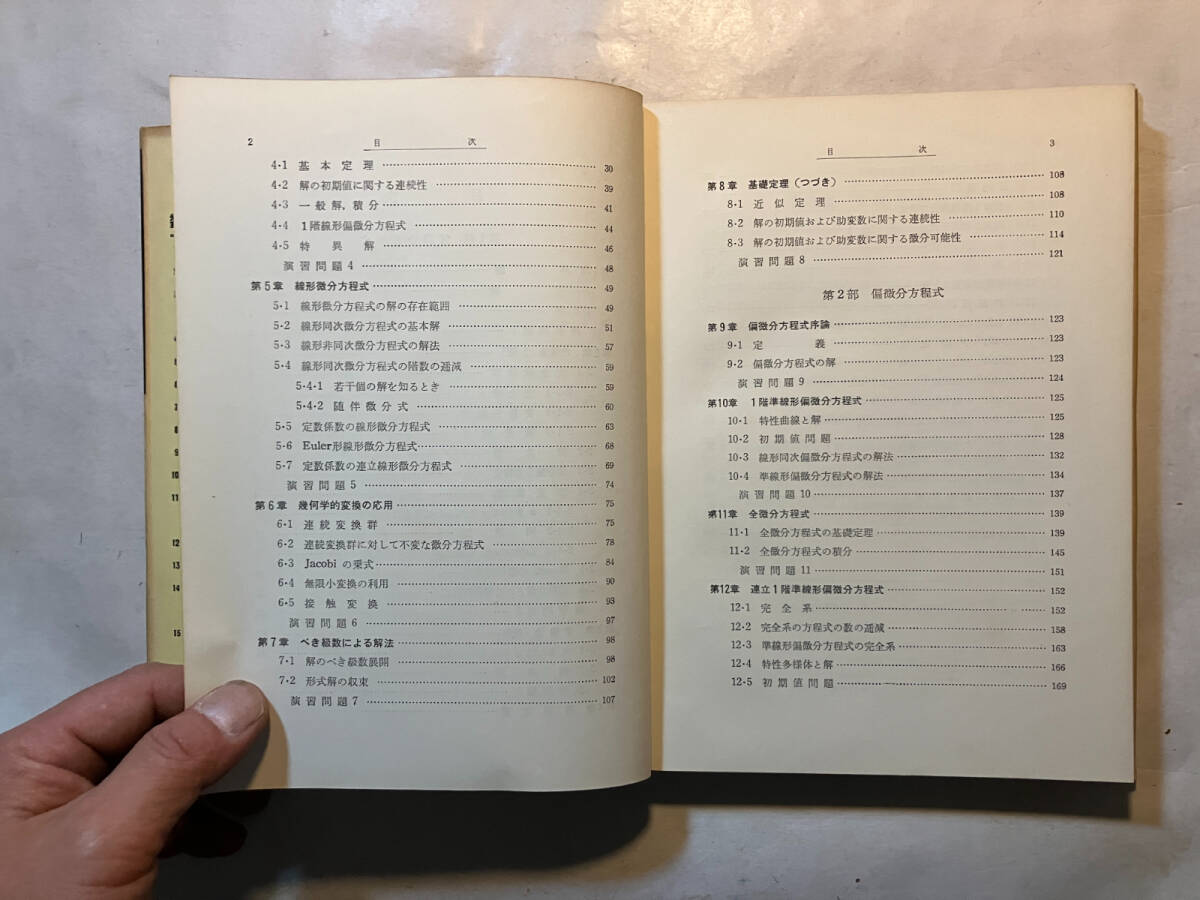 2 目次
4・1 基本定理 30
4・2 解の初期値に関する連続性 39
4・3 一般解，積分 41
4・4 1階線形偏微分方程式 44
4・5 特異解 46
演習問題4 48
第5章 線形微分方程式 49
5・1 線形微分方程式の解の存在範囲 49
5・2 線形同次微分方程式の基本解 51
5・3 線形非同次微分方程式の解法 57
5・4 線形同次微分方程式の階数の逓減 59
5・4・1 若干個の解を知るとき 59
5・4・2 随伴微分式 60
5・5 定数係数の線形微分方程式 63
5・6 Euler形線形微分方程式 68
5・7 定数係数の連立線形微分方程式 69
演習問題5 74
第6章 幾何学的変換の応用 75
6・1 連続変換群 75
6・2 連続変換群に対して不変な微分方程式 78
6・3 Jacobi の乗式 84
6・4 無限小変換の利用 90
6・5 接触変換 93
演習問題6 97
第7章 べき級数による解法 98
7・1 解のべき級数展開 98
7・2 形式解の収束 102
演習問題7 107
目次 3
第8章 基礎定理（つづき） 108
8・1 近似定理 108
8・2 解の初期値および助変数に関する連続性 110
8・3 解の初期値および助変数に関する微分可能性 114
演習問題8 121
第2部 偏微分方程式
第9章 偏微分方程式序論 123
9・1 定義 123
9・2 偏微分方程式の解 123
演習問題9 124
第10章 1階準線形偏微分方程式 125
10・1 特性曲線と解 125
10・2 初期値問題 128
10・3 線形同次偏微分方程式の解法 132
10・4 準線形偏微分方程式の解法 134
演習問題10 137
第11章 全微分方程式 139
11・1 全微分方程式の基礎定理 139
11・2 全微分方程式の積分 145
演習問題11 151
第12章 連立1階準線形偏微分方程式 152
12・1 完全系 152
12・2 完全系の方程式の数の逓減 158
12・3 準線形偏微分方程式の完全系 163
12・4 特性多様体と解 166
12・5 初期値問題 169
4
5
6
7
8
9
10
11
12
13
14
15